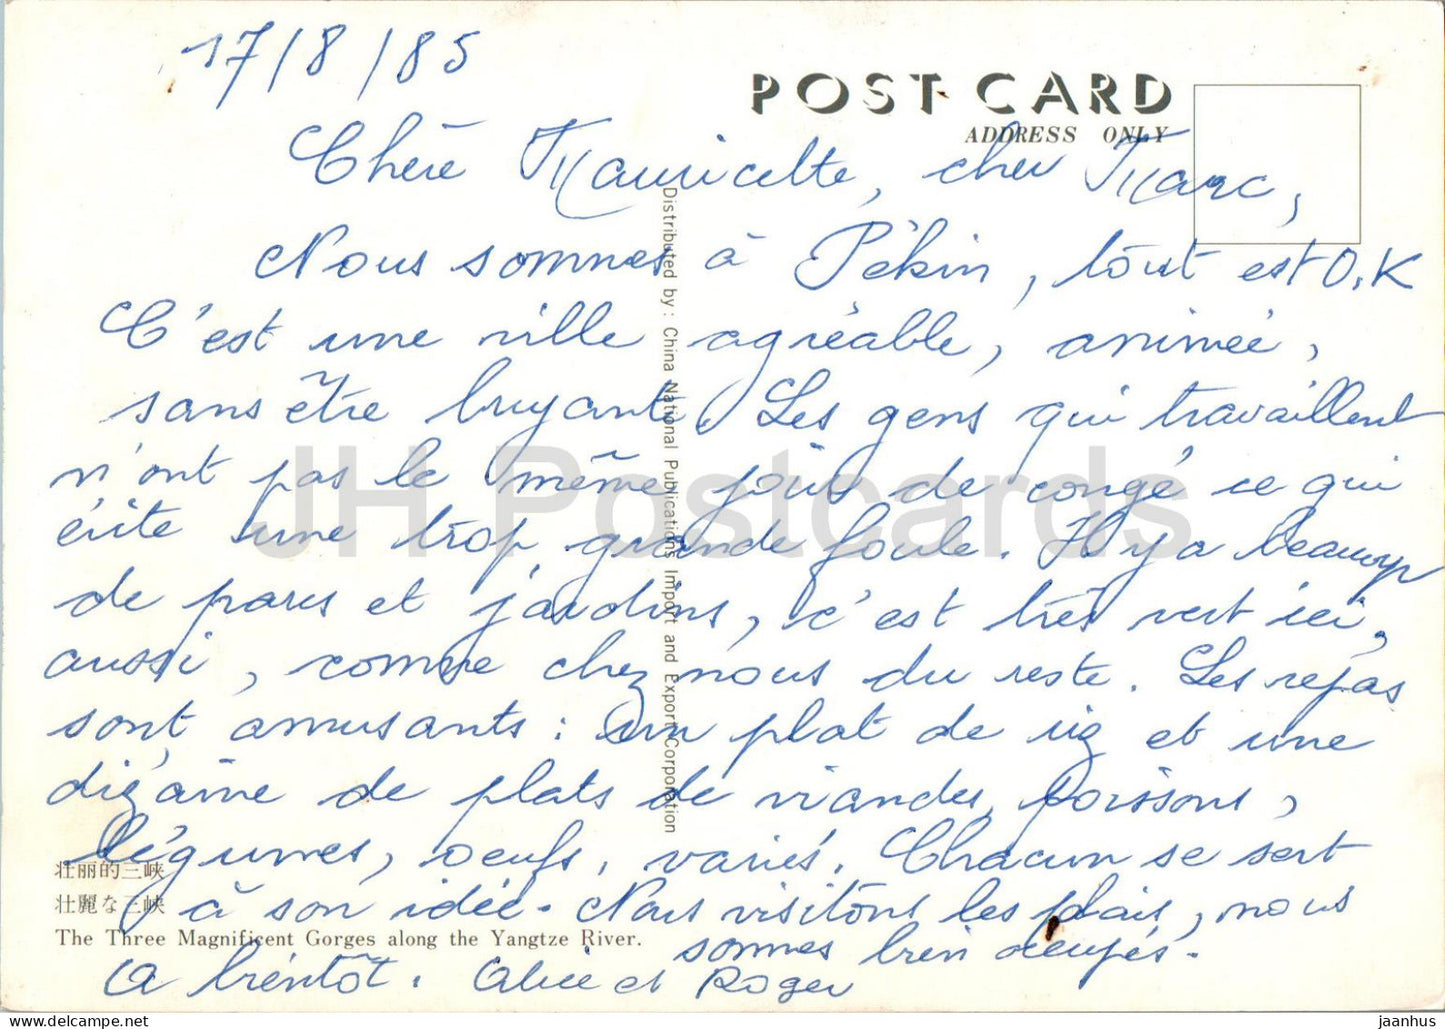 17/8/85
POST CARD
ADDRESS ONLY
Chère Mauricette, cher Marc,
Nous sommes à Pékin, tout est O.K
C'est une ville agréable, animée,
sans être bruyante. Les gens qui travaillent
n'ont pas le même jour de congé ce qui
évite une trop grande foule. Il y a beaucoup
de parcs et jardins, c'est très vert ici,
aussi, comme chez nous du reste. Les repas
sont amusants : un plat de riz et une
dizaine de plats de viandes, poissons,
légumes, oeufs, variés. Chacun se sert
à son idée. Nous visitons les palais, nous
sommes bien occupés.
A bientôt. Alice et Roger
Distributed by: China National Publications Import and Export Corporation
壮丽的三峡
壮麗な三峡
The Three Magnificent Gorges along the Yangtze River.
JH Postcards
jaanhus